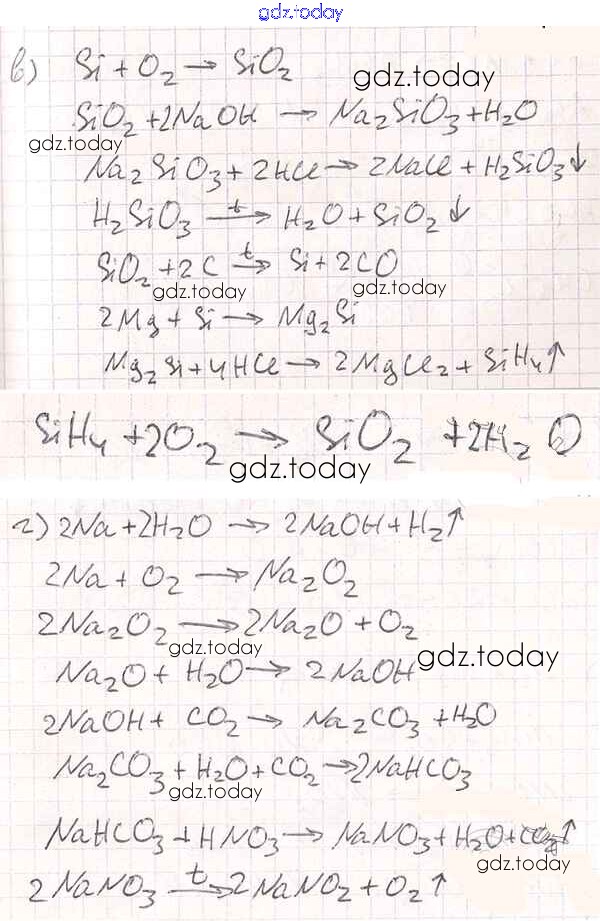 gdz.today
в) Si + O₂ → SiO₂
gdz.today
SiO₂ + 2NaOH → Na₂SiO₃ + H₂O
gdz.today
Na₂SiO₃ + 2HCl → 2NaCl + H₂SiO₃↓
H₂SiO₃ t→ H₂O + SiO₂↓
SiO₂ + 2C t→ Si + 2CO
gdz.today gdz.today
2Mg + Si → Mg₂Si
Mg₂Si + 4HCl → 2MgCl₂ + SiH₄↑
SiH₄ + 2O₂ → SiO₂ + 2H₂O
gdz.today
г) 2Na + 2H₂O → 2NaOH + H₂↑
2Na + O₂ → Na₂O₂
2Na₂O₂ → 2Na₂O + O₂
gdz.today
gdz.today
Na₂O + H₂O → 2NaOH
2NaOH + CO₂ → Na₂CO₃ + H₂O
Na₂CO₃ + H₂O + CO₂ → 2NaHCO₃
gdz.today
NaHCO₃ + HNO₃ → NaNO₃ + H₂O + CO₂↑
gdz.today
2NaNO₃ t→ 2NaNO₂ + O₂↑